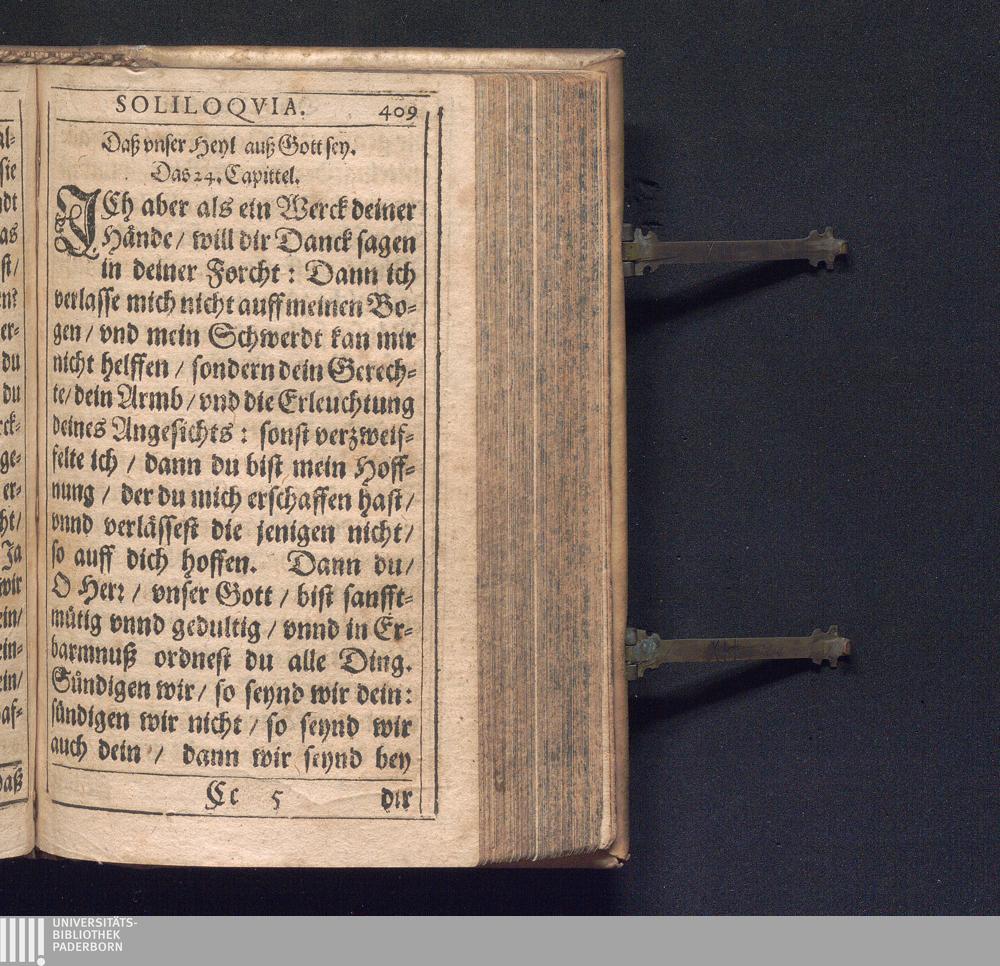 SOLILOQVIA. 409
Daß vnser Heyl auß Gott sey.
Das 24. Capittel.
ICh aber als ein Werck deiner
Hände / will dir Danck sagen
in deiner Forcht : Dann ich
verlasse mich nicht auff meinen Bo-
gen / vnd mein Schwerdt kan mir
nicht helffen / sondern dein Gerech-
te / dein Armb / vnd die Erleuchtung
deines Angesichts : sonst verzweif-
felte ich / dann du bist mein Hoff-
nung / der du mich erschaffen hast /
vnnd verlässest die jenigen nicht /
so auff dich hoffen. Dann du /
O Herr / vnser Gott / bist sanfft-
mütig vnnd gedultig / vnnd in Er-
barmnuß ordnest du alle Ding.
Sündigen wir / so seynd wir dein :
sündigen wir nicht / so seynd wir
auch dein / dann wir seynd bey
Cc 5 dir
UNIVERSITÄTS-
BIBLIOTHEK
PADERBORN